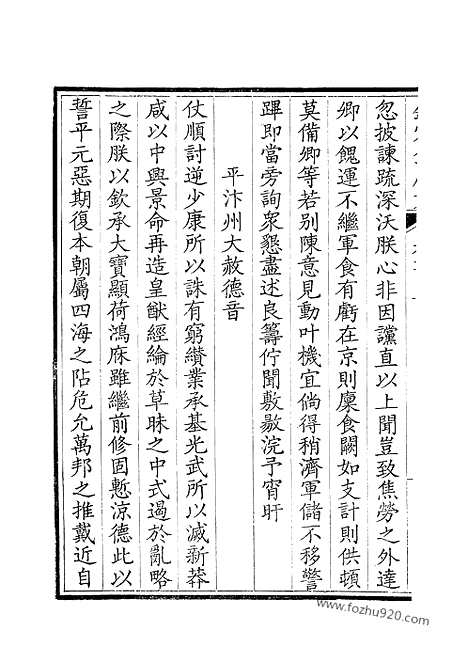 忽披諫疏深沃朕心非因讜直以上聞豈致焦勞之外達
卿以餽運不繼軍食有虧在京則廩食闕如支計則供頓
莫備卿等若別陳意見動叶機宜倘得稍濟軍儲不移警
蹕即當旁詢衆懇盡述良籌佇聞敷敭浣予宵旰
平汴州大赦德音
仗順討逆少康所以誅有窮纘業承基光武所以滅新莽
咸以中興景命再造皇猷經綸於草昧之中式遏於亂略
之際朕以欽承大寶顯荷鴻庥雖繼前修固慙涼德此以
誓平元惡期復本朝屬四海之阽危允萬邦之推戴近自
www.fozhu920.com